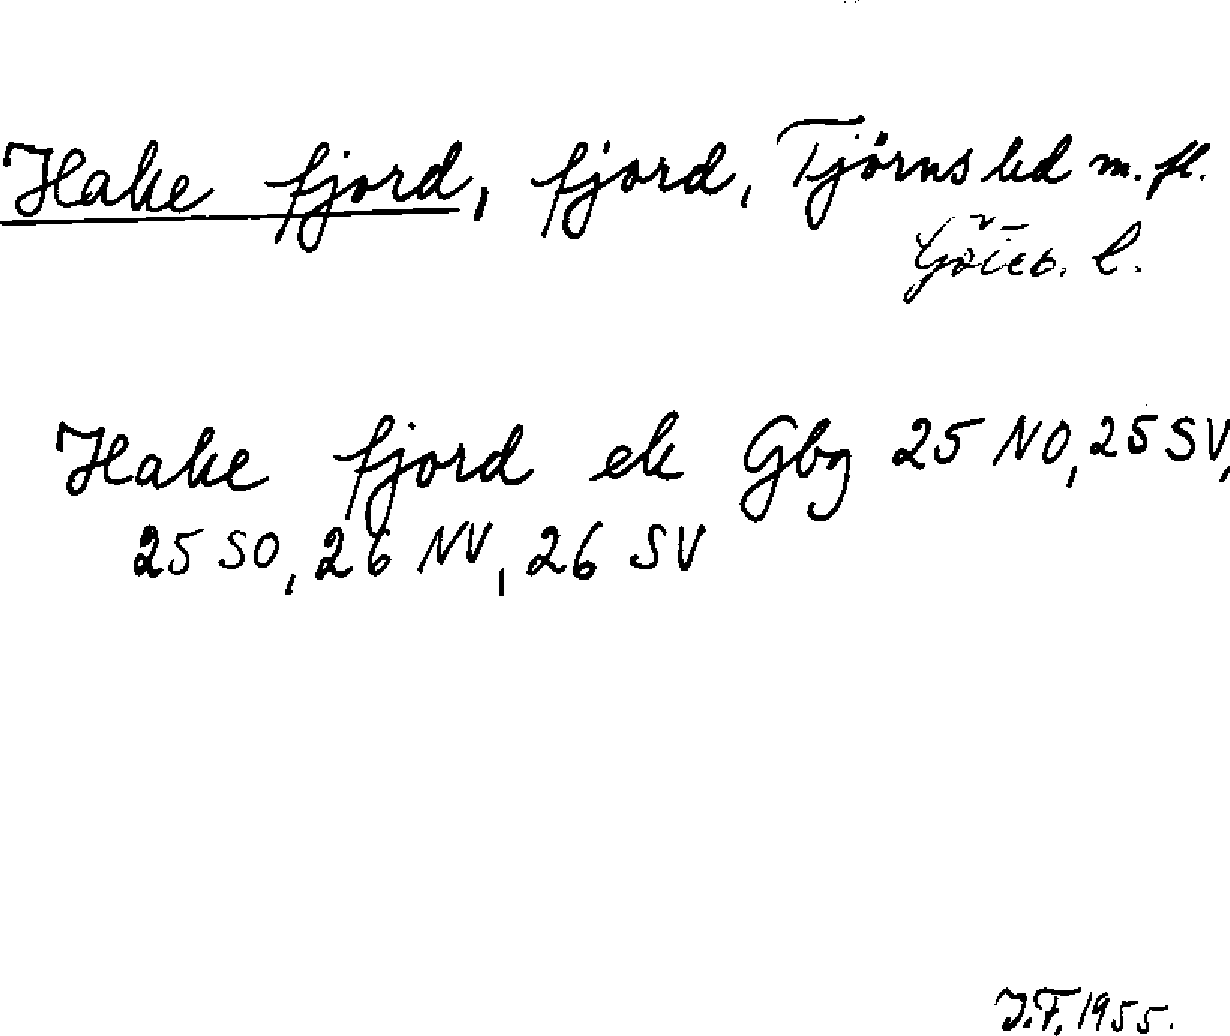 Hake fjord, fjord, Tjörns hd m. fl.
Göteb. l.
Hake fjord ek Gbg 25 NO, 25 SV,
25 SO, 26 NV, 26 SV
J.F. 1955.